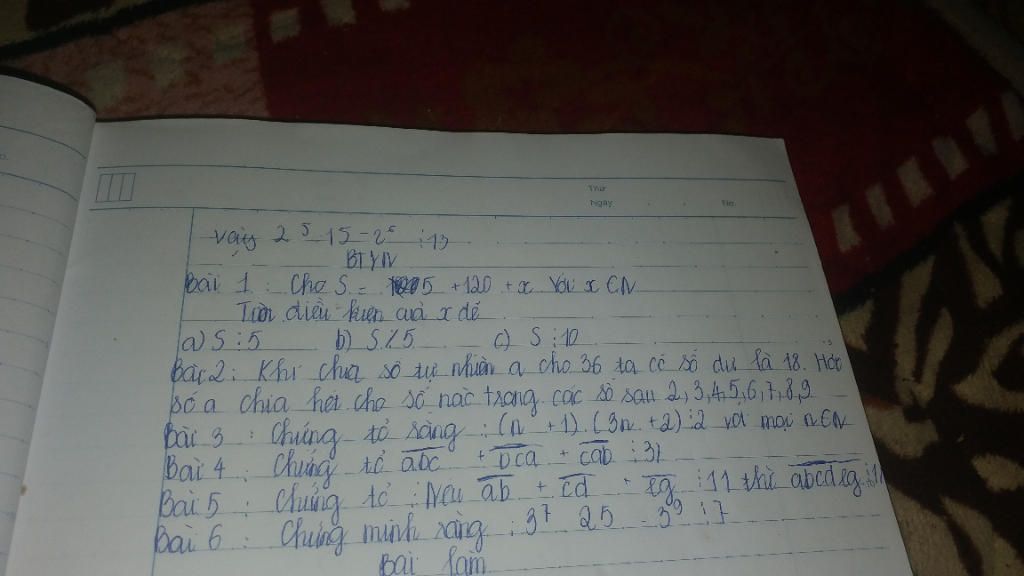 Thứ
Ngày No.
Vậy 2⁵ - 15 - 2⁵ ⋮ 13
BTVN
Bài 1 : Cho S = 5 + 120 + x với x ∈ N
Tìm điều kiện của x để
a) S ⋮ 5 b) S ⋮̸ 5 c) S ⋮ 10
Bài 2 : Khi chia số tự nhiên a cho 36 ta có số dư là 18. Hỏi
số a chia hết cho số nào trong các số sau 2, 3, 4, 5, 6, 7, 8, 9
Bài 3 : Chứng tỏ rằng : (n + 1) . (3n + 2) ⋮ 2 với mọi n ∈ N
Bài 4 : Chứng tỏ abc + bca + cab ⋮ 37
Bài 5 : Chứng tỏ : Nếu ab + cd + eg ⋮ 11 thì abcdeg ⋮ 11
Bài 6 : Chứng minh rằng : 3⁷ 25 3⁹ ⋮ 7
Bài làm